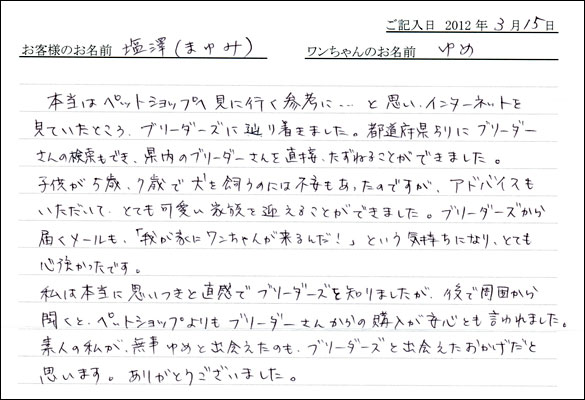 ご記入日 2012年3月15日
お客様のお名前 塩澤(まゆみ) ワンちゃんのお名前 ゆめ
本当はペットショップへ見に行く参考に… と思い、インターネットを
見ていたところ、ブリーダーズに辿り着きました。都道府県別にブリーダー
さんの検索もでき、県内のブリーダーさんを直接、たずねることができました。
子供が5歳、7歳で犬を飼うのには不安もあったのですが、アドバイスも
いただいて、とても可愛い家族を迎えることができました。ブリーダーズから
届くメールも、「我が家にワンちゃんが来るんだ!」という気持ちになり、とても
心強かったです。
私は本当に思いつきと直感でブリーダーズを知りましたが、後で周囲から
聞くと、ペットショップよりもブリーダーさんからの購入が安心とも言われました。
素人の私が、無事ゆめと出会えたのも、ブリーダーズと出会えたおかげだと
思います。ありがとうございました。